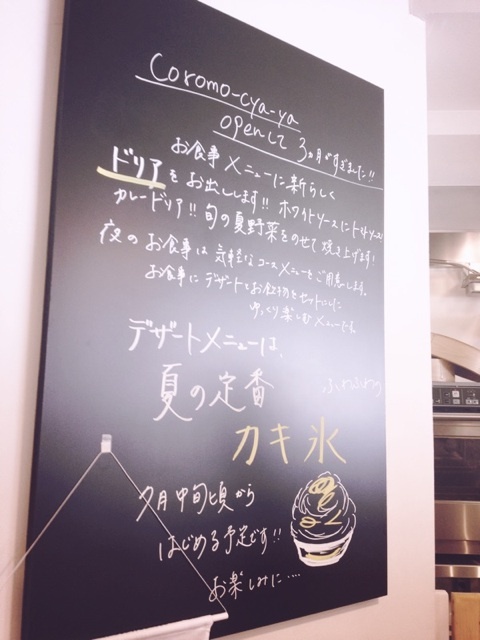 Coromo-cya-ya
openして 3ヵ月がすぎました!!
お食事メニューに新らしく
ドリアをお出しします!! ホワイトソースにトマトソース
カレードリア!! 旬の夏野菜をのせて焼き上げます!
夜のお食事は気軽なコースメニューをご用意します。
お食事にデザートとお飲物をセットにし
ゆっくり楽しむメニューです。
デザートメニューは、
夏の定番
ふわふわの
カキ氷
7月中旬頃から
はじめる予定です!!
お楽しみに....